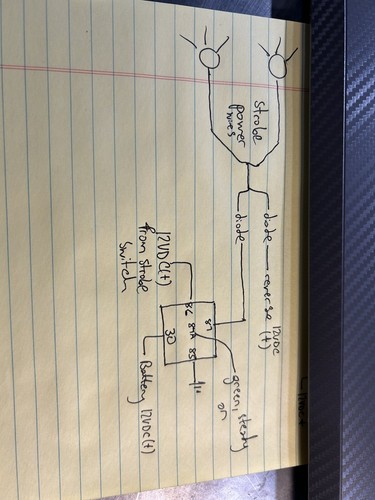 strobe
power
wires
diode
reverse
12VDC
(+)
diode
12VDC(+)
from strobe
switch
86
87
87A
85
30
green, steady
on
Battery 12VDC(+)